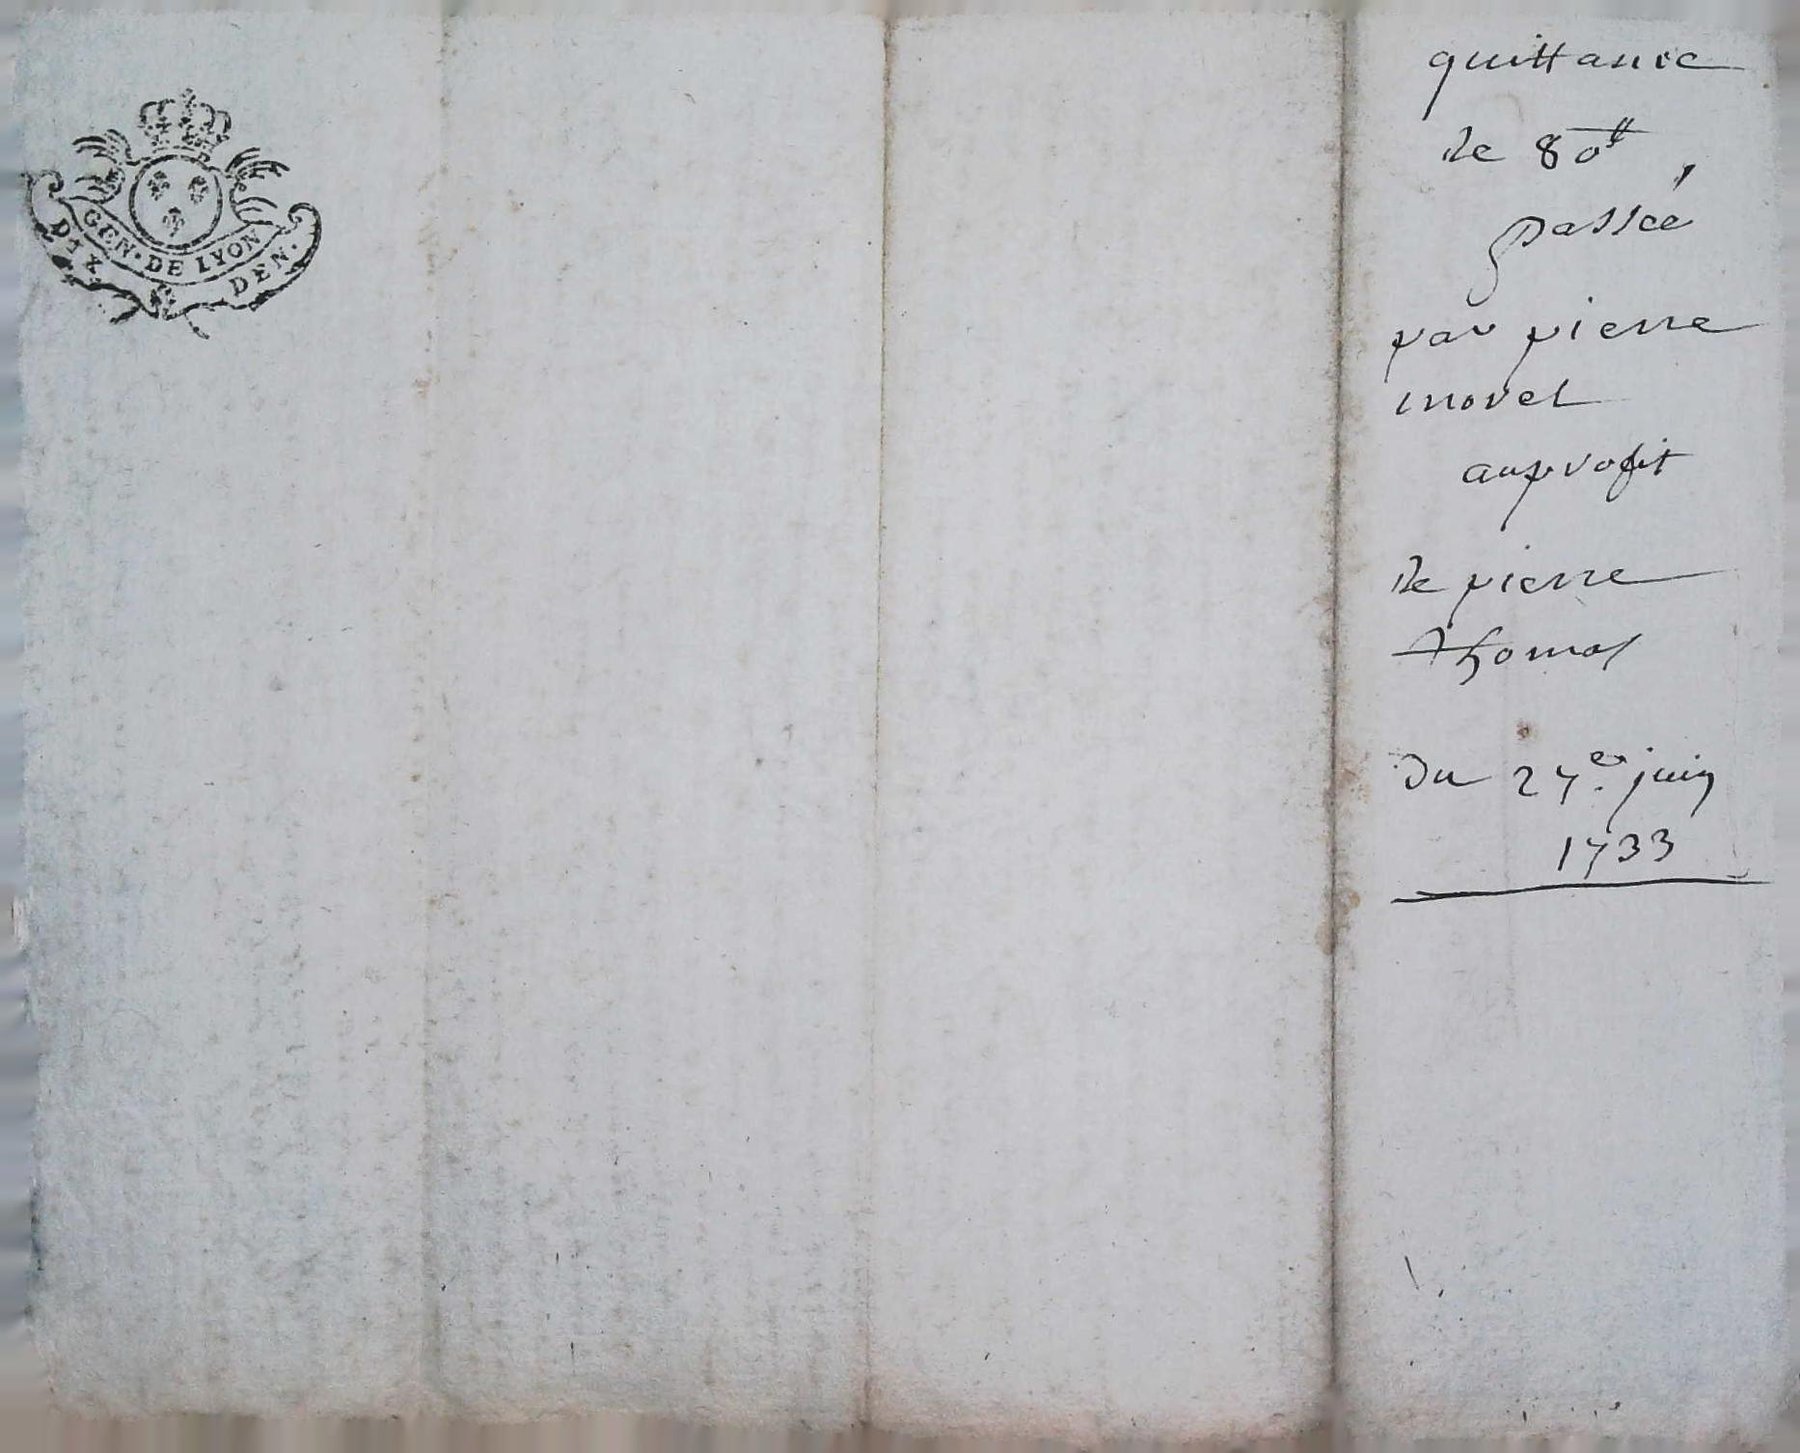 GEN. DE LYON
DIX DEN.
quittance
de 80tt
passée
par pierre
morel
au profit
de pierre
thomas
Du 27e juin
1733